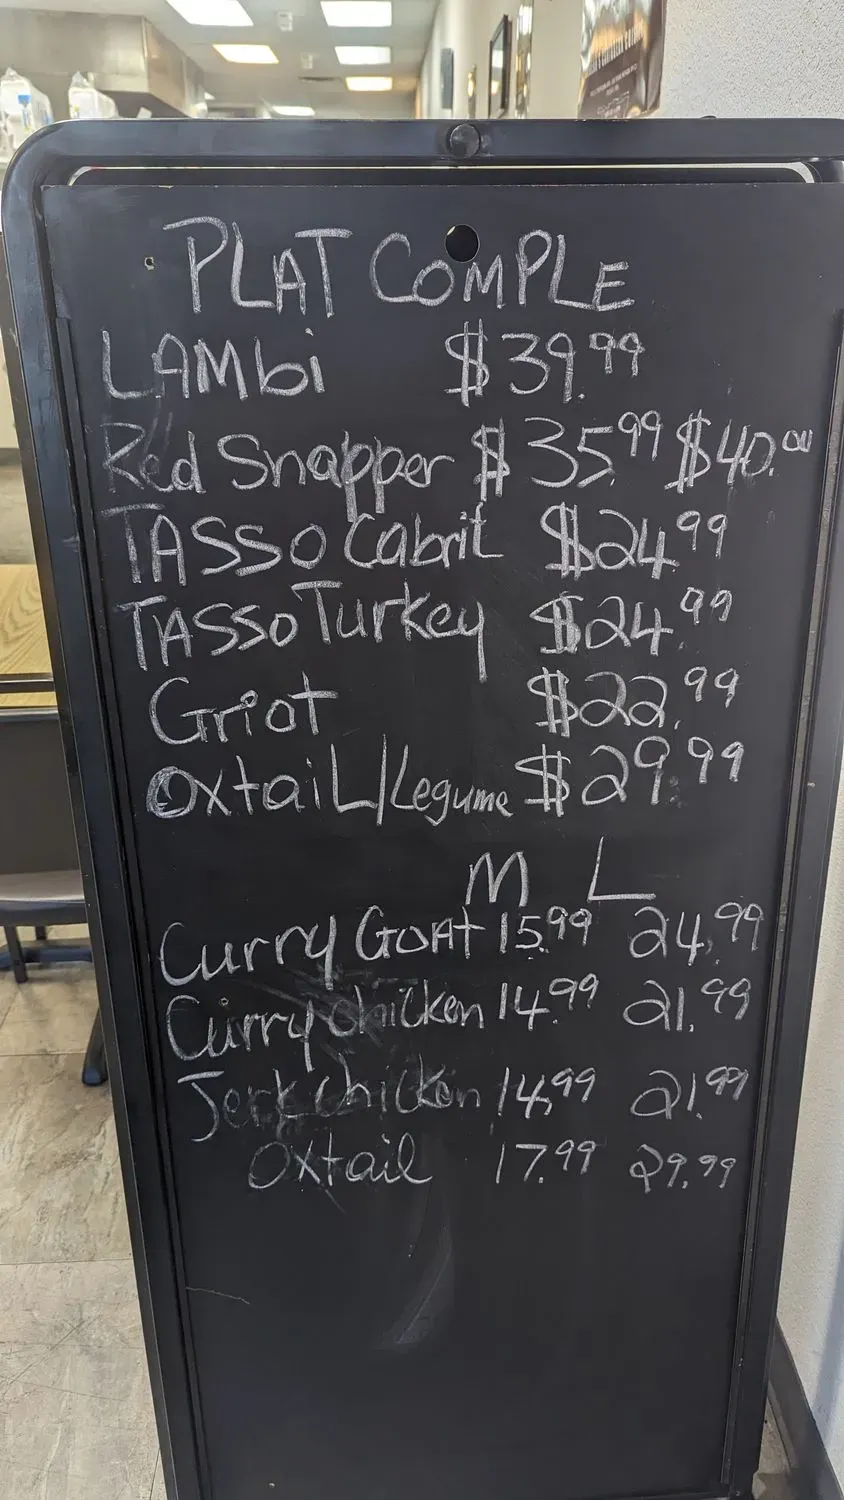 PLAT COMPLE
LAMbi $39.99
Red Snapper $35.99 $40.00
TASSO Cabrit $24.99
TASSO Turkey $24.99
Griot $22.99
OxtaiL/Legume $29.99
M L
Curry GOAt 15.99 24.99
Curry chicken 14.99 21.99
Jerk chicken 14.99 21.99
Oxtail 17.99 29.99